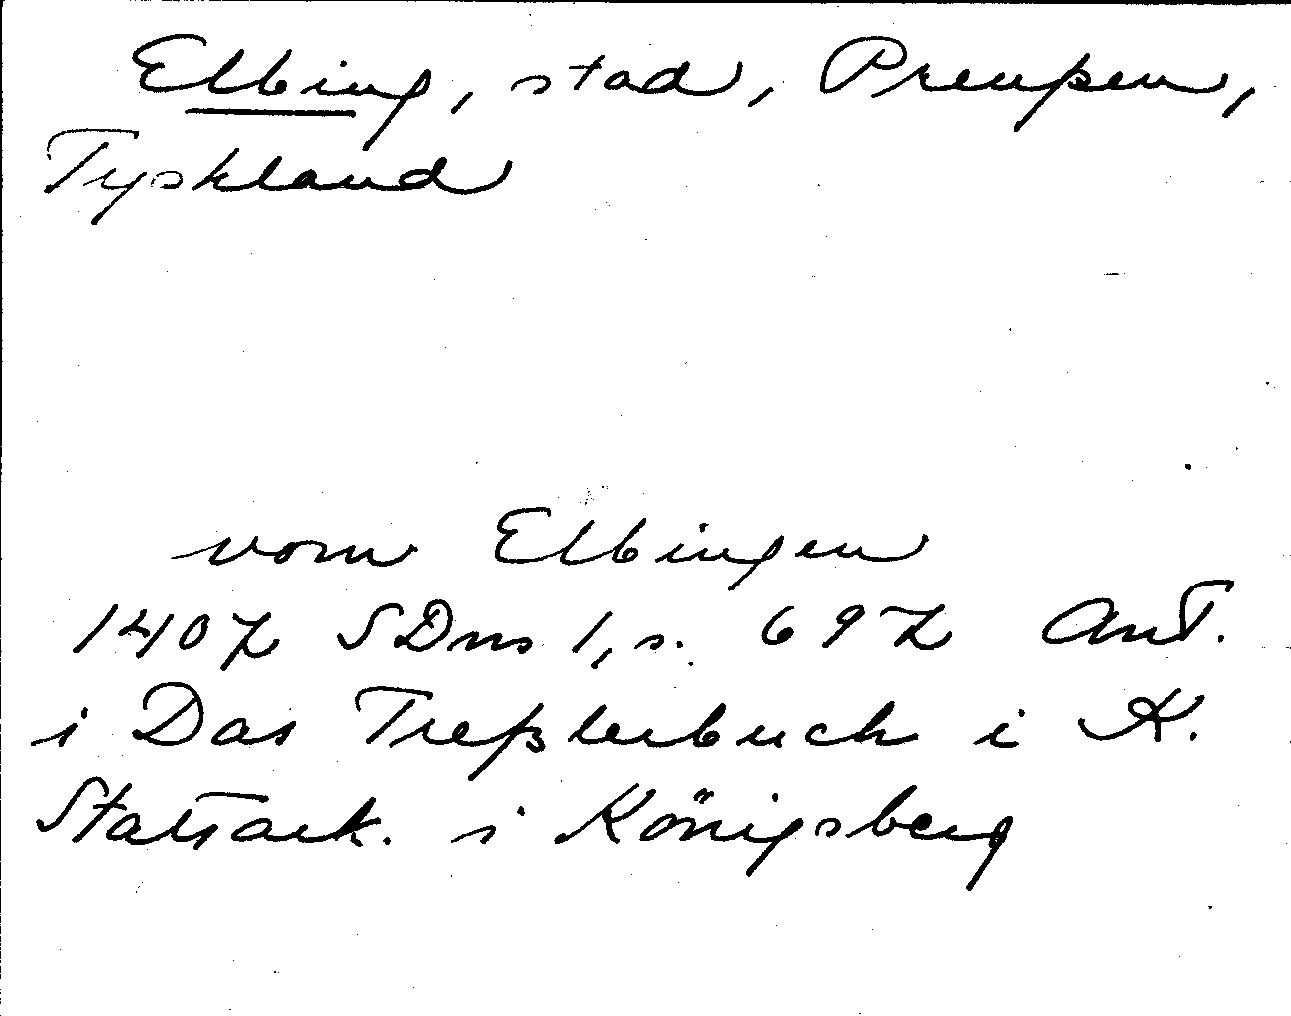 Elbing, stad, Preußen,
Tyskland
vom Elbingen
1407 SDns 1, s. 697 Ant.
i Das Treßlerbuch i K.
Statsark. i Königsberg